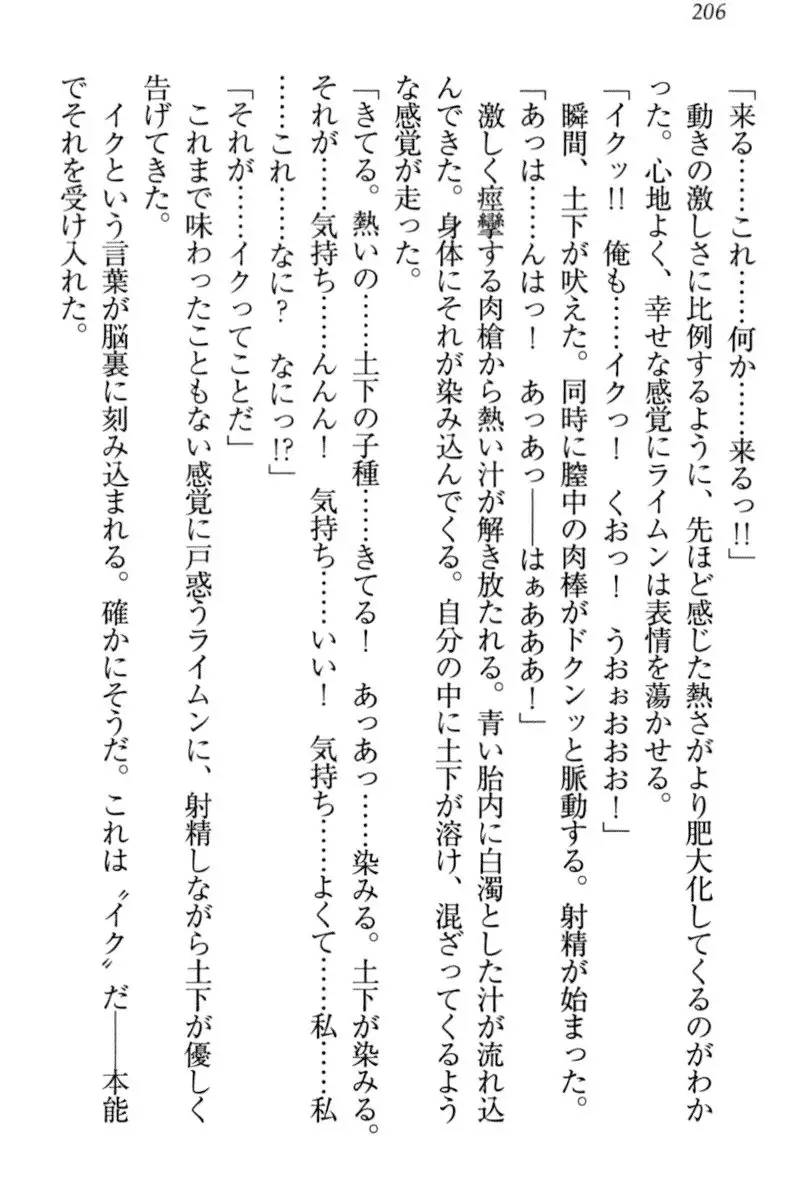 206
「来る……これ……何か……来るっ!!」
動きの激しさに比例するように、先ほど感じた熱さがより肥大化してくるのがわか
った。心地よく、幸せな感覚にライムンは表情を蕩かせる。
「イクッ!!　俺も……イクっ！　くおっ！　うおぉおおお！」
瞬間、土下が吠えた。同時に膣中の肉棒がドクンッと脈動する。射精が始まった。
「あっは……んはっ！　あっあっ――はぁあああ！」
激しく痙攣する肉槍から熱い汁が解き放たれる。青い胎内に白濁とした汁が流れ込
んできた。身体にそれが染み込んでくる。自分の中に土下が溶け、混ざってくるよう
な感覚が走った。
「きてる。熱いの……土下の子種……きてる！　あっあっ……染みる。土下が染みる。
それが……気持ち……んんん！　気持ち……いい！　気持ち……よくて……私……私
……これ……なに？　なにっ!?」
「それが……イクってことだ」
これまで味わったこともない感覚に戸惑うライムンに、射精しながら土下が優しく
告げてきた。
イクという言葉が脳裏に刻み込まれる。確かにそうだ。これは〝イク〟だ――本能
でそれを受け入れた。